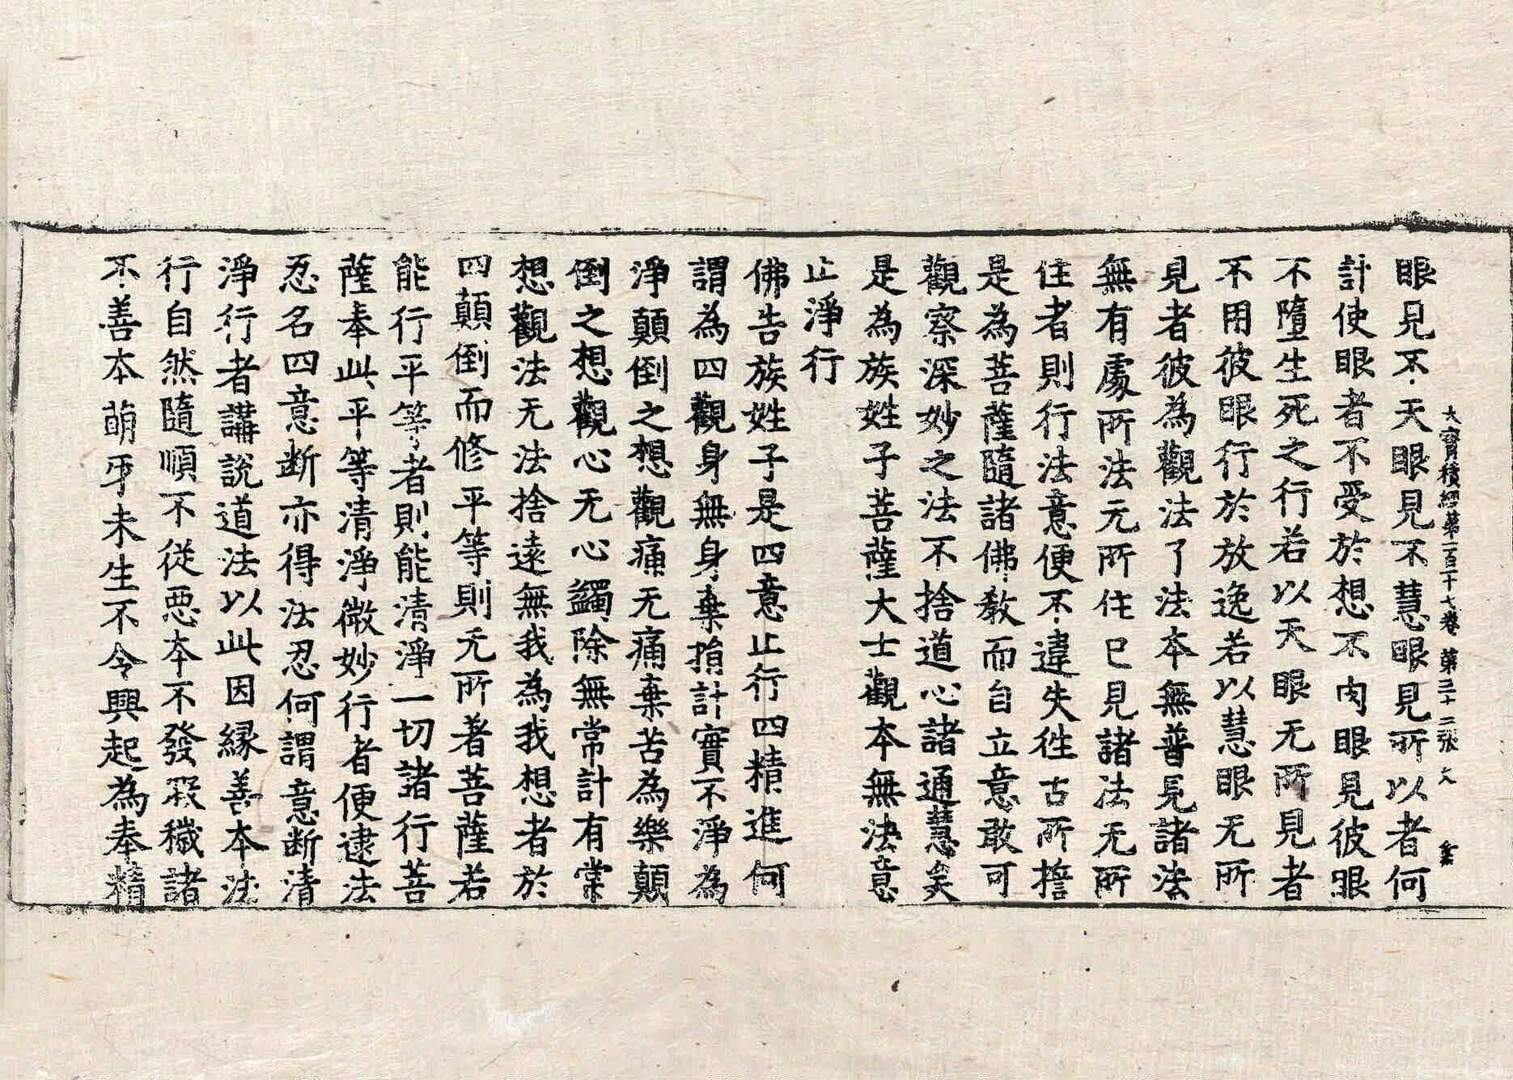 大寶積經第一百十七卷 第三十二張 文
眼見不天眼見不慧眼見所以者何
計使眼者不受於想不肉眼見彼眼
不墮生死之行若以天眼无所見者
不用彼眼行於放逸若以慧眼无所
見者彼為觀法了法本無普見諸法
無有處所法元所住已見諸法无所
住者則行法意便不違失徃古所誓
是為菩薩隨諸佛教而自立意敢可
觀察深妙之法不捨道心諸通慧矣
是為族姓子菩薩大士觀本無法意
止淨行
佛告族姓子是四意止行四精進何
謂為四觀身無身棄捐計實不淨為
淨顛倒之想觀痛无痛棄苦為樂顛
倒之想觀心无心蠲除無常計有常
想觀法无法捨遠無我為我想者於
四顛倒而修平等則无所著菩薩若
能行平等者則能清淨一切諸行菩
薩奉此平等清淨微妙行者便逮法
忍名四意断亦得法忍何謂意断清
淨行者講說道法以此因緣善本法
行自然隨順不從惡本不發瑕穢諸
不善本萌牙未生不令興起為奉精